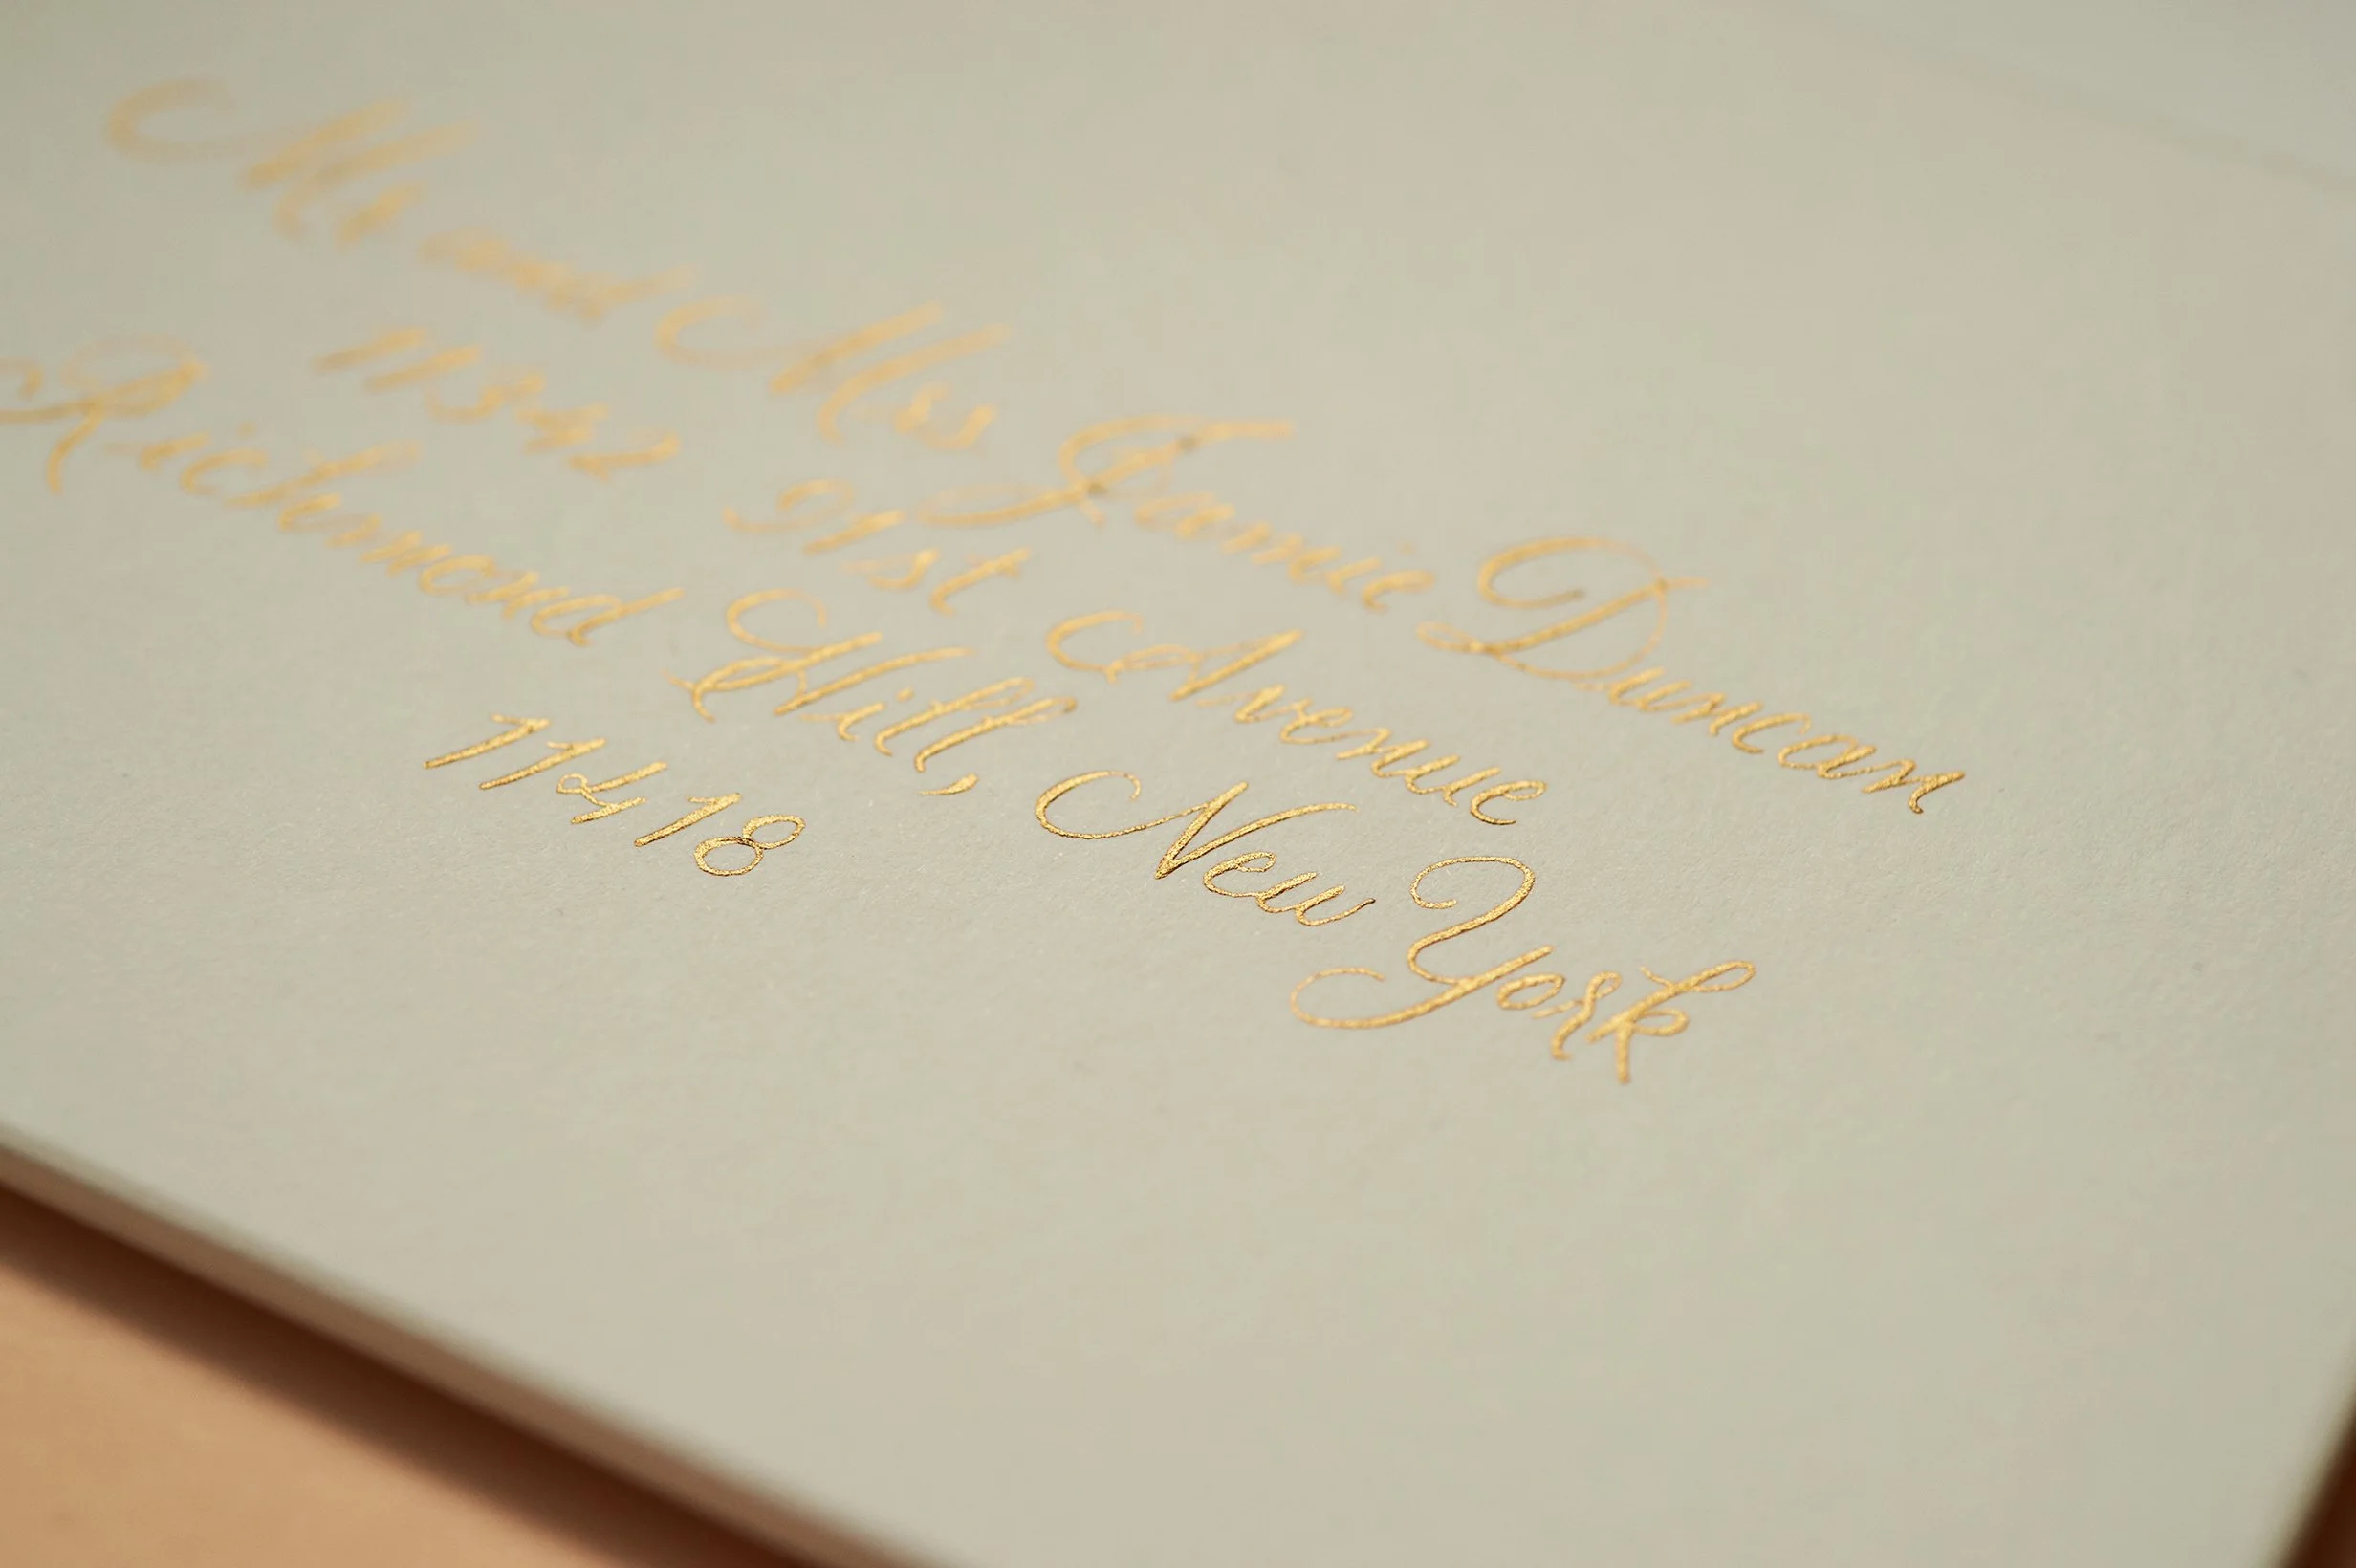 Mr and Mrs Jamie Duncan
11342 91st Avenue
Richmond Hill, New York
11418